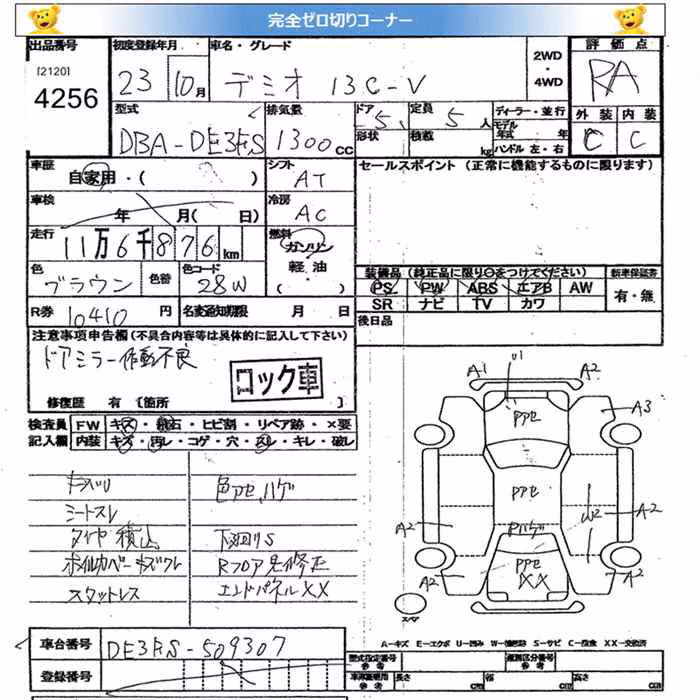 完全ゼロ切りコーナー
出品番号 初度登録年月 車名・グレード 2WD・4WD 評価点
[2120] 4256 23 10月 デミオ 13C-V RA
型式 排気量 ドア 定員 ディーラー・並行 外装 内装
DBA-DE3FS 1300cc 5 5人 モデル年式 年 C C
形状 積載 kg ハンドル 左・右
車歴 自家用・( ) シフト AT セールスポイント (正常に機能するものに限ります)
車検 年 月( 日) 冷房 AC
走行 11万6千876km 燃料 ガソリン・軽油・
色 ブラウン 色替 色コード 28W
装備品 (純正品に限り○をつけてください) 新車保証書
PS PW ABS エアB AW 有・無
SR ナビ TV カワ
R券 10410円 名変通知期限 月 日 後日品
注意事項申告欄 (不具合内容等は具体的に記入して下さい)
ドアミラー作動不良
ロック車
修復歴 有 [箇所 ]
検査員 FW キズ・飛石・ヒビ割・リペア跡・×要
記入欄 内装 キズ・汚レ・コゲ・穴・スレ・キレ・破レ
キズヘリ 色アセ、ハゲ
シートスレ
タイヤ積込 下廻りS
ホイルカバーキズワレ Rフロア見修正
スタットレス エンドパネルXX
A1 U1 A2
Pアセ A3
Pアセ
A2 Pハゲ U2 A2
A2 Pアセ XX A2
スペア
A-キズ E-エクボ U-凹み W-補修跡 S-サビ C-腐食 XX-交換済
車台番号 DE3FS-509307
登録番号
型式指定番号 参考 類別区分番号 参考
車両諸元 参考 長さ cm 幅 cm 高さ cm